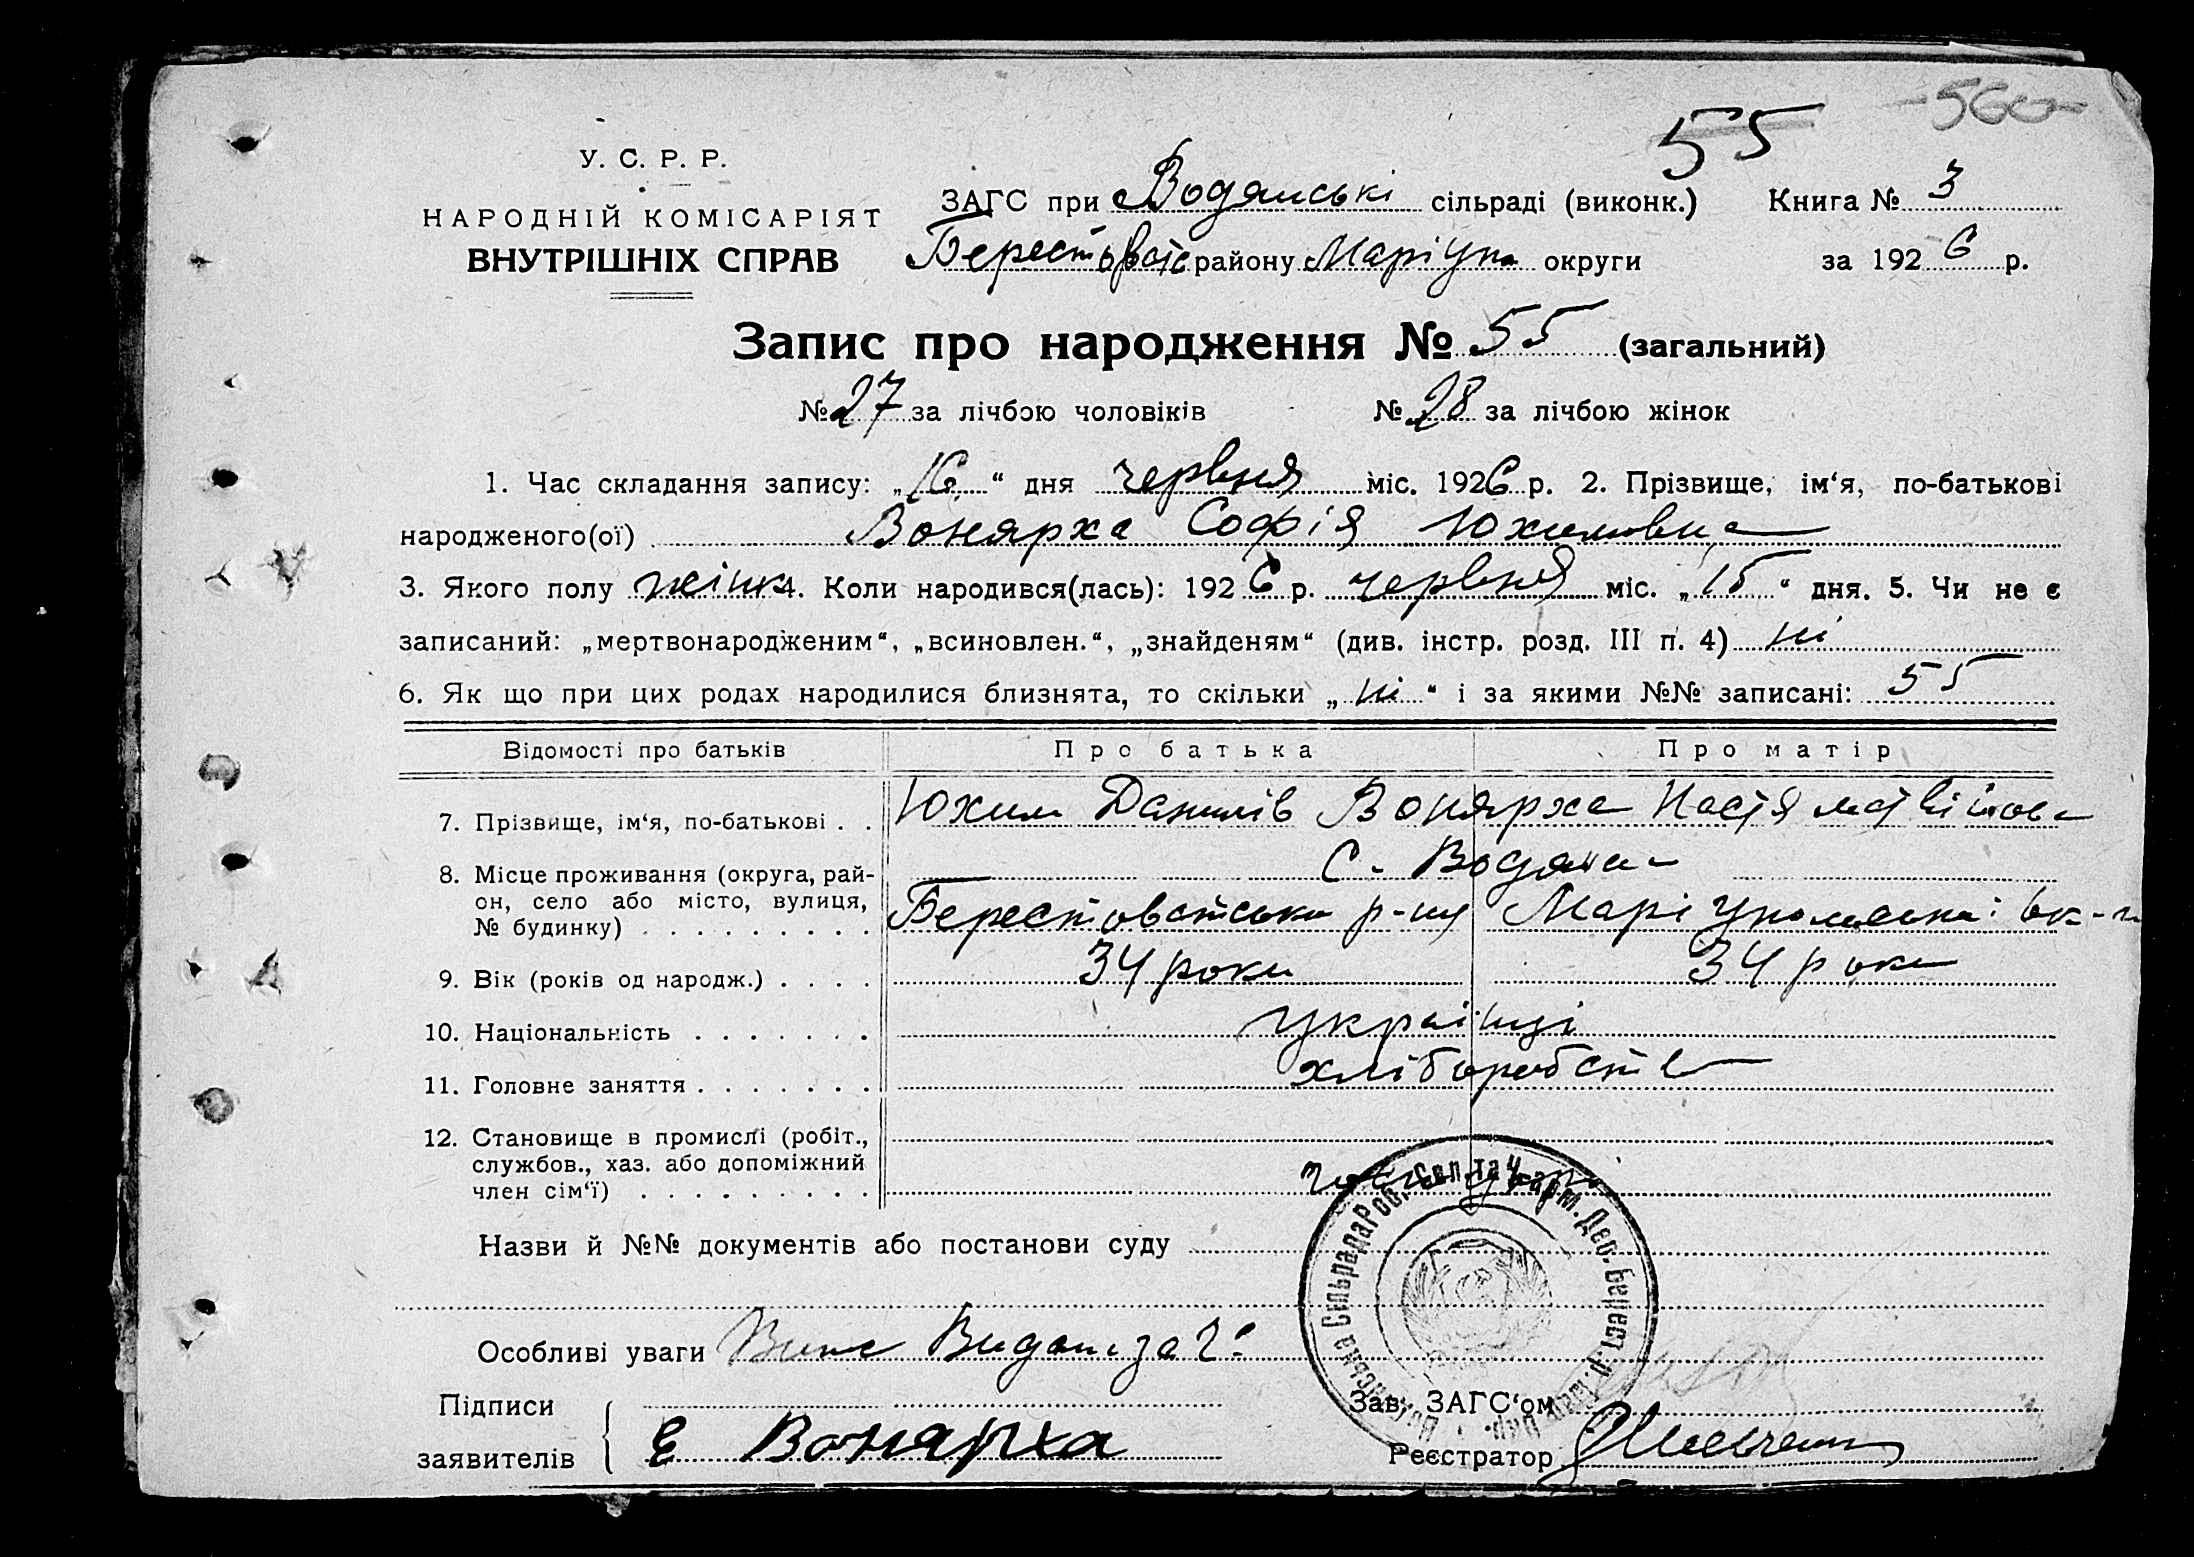 560
55
У. С. Р. Р.
НАРОДНІЙ КОМІСАРІЯТ
ВНУТРІШНІХ СПРАВ
ЗАГС при Водянські сільраді (виконк.) Книга № 3
Берестоватс району Маріуп округи за 1926 р.
Запис про народження № 55 (загальний)
№ 27 за лічбою чоловіків № 28 за лічбою жінок
1. Час складання запису: „16“ дня червня міс. 1926 р. 2. Прізвище, ім‘я, по-батькові
народженого(ої) Вонярха Софія Юхимовна
3. Якого полу жінк 4. Коли народився(лась): 1926 р. червня міс. „15“ дня. 5. Чи не є
записаний: „мертвонародженим“, „всиновлен.“, „знайденям“ (див. інстр. розд. III п. 4) ні
6. Як що при цих родах народилися близнята, то скільки „ні“ і за якими №№ записані: 55
Відомості про батьків Про батька Про матір
7. Прізвище, ім‘я, по-батькові . . Юхим Данилів Вонярха Настя Матвійова
8. Місце проживання (округа, рай-
он, село або місто, вулиця,
№ будинку) . . . . . . . . .
с. Водяна
Берестоватськи р-ну Маріупольської ок-и
9. Вік (років од народж.) . . . . 34 роки 34 роки
10. Національність . . . . . . . українці
11. Головне заняття . . . . . . . хліборобств
12. Становище в промислі (робіт.,
службов., хаз. або допоміжний
член сім‘ї) . . . . . . . . .
Сільрада Роб. Сел. та Черв. арм. Деп. Берест. р.
Назви й №№ документів або постанови суду
Особливі уваги Видан за №
Підписи
заявителів
Е Вонярха
Зав. ЗАГС‘ом
Реєстратор